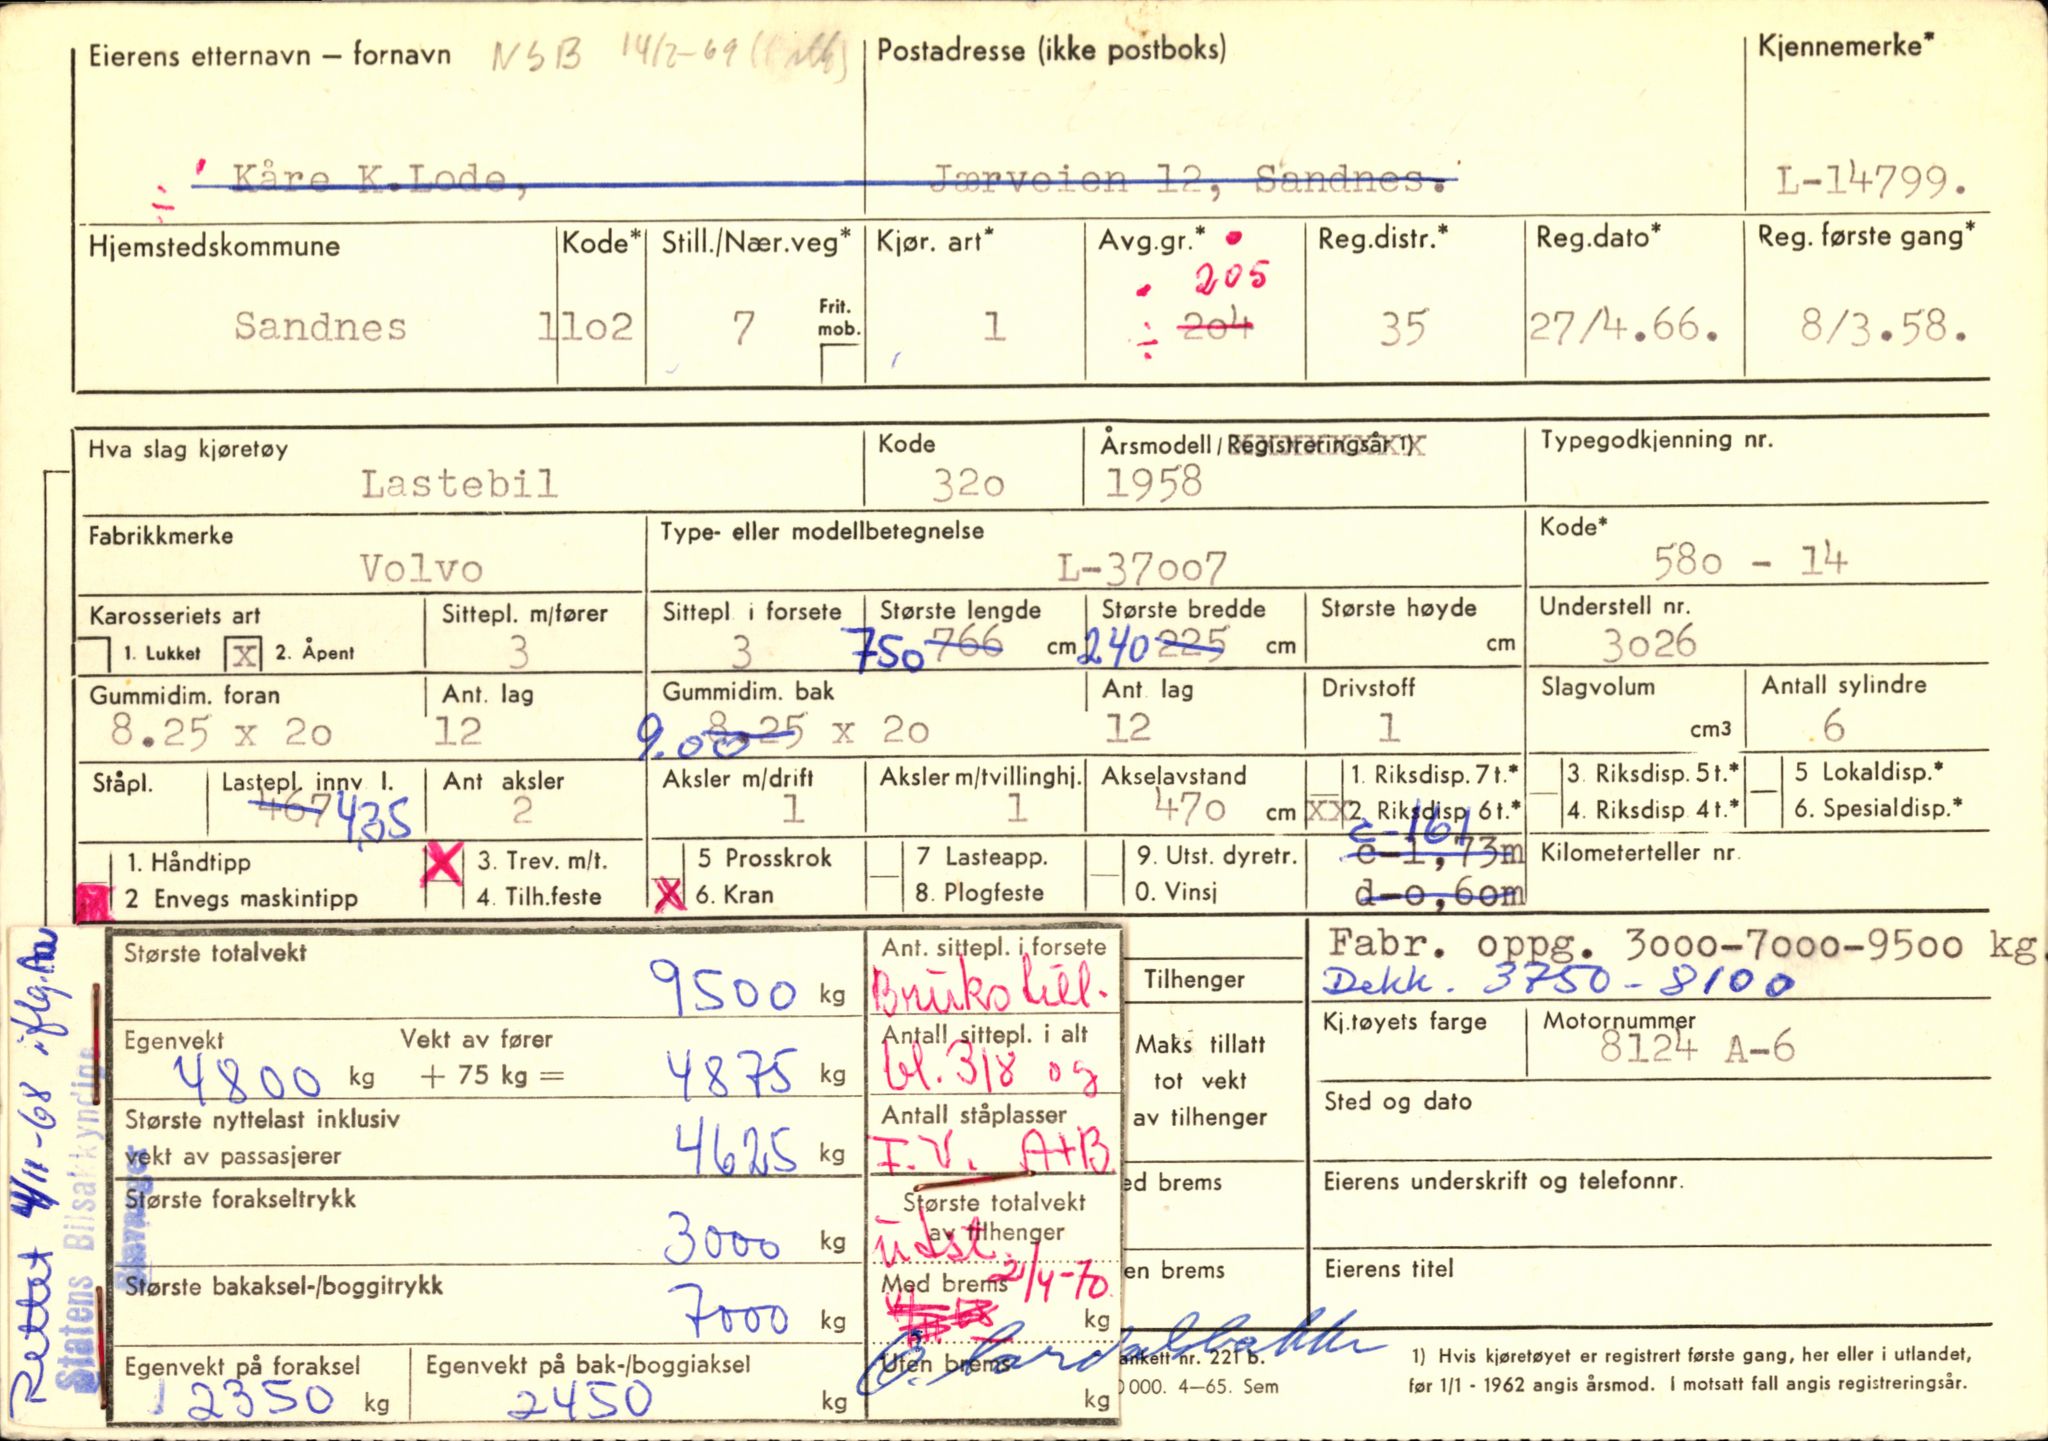 Eierens etternavn – fornavn NSB 14/2-69 Postadresse (ikke postboks) Kjennemerke*
Kåre K.Lode, Jærveien 12, Sandnes. L-14799.
Hjemstedskommune Kode* Still./Nær.veg* Kjør. art* Avg.gr.* Reg.distr.* Reg.dato* Reg. første gang*
205
Sandnes 11o2 7 Frit. mob. 1 204 35 27/4.66. 8/3.58.
Hva slag kjøretøy Kode Årsmodell / Registreringsår 1) Typegodkjenning nr.
Lastebil 32o 1958
Fabrikkmerke Type- eller modellbetegnelse Kode*
Volvo L-37oo7 58o - 14
Karosseriets art Sittepl. m/fører Sittepl i forsete Største lengde Største bredde Største høyde Understell nr.
1. Lukket X 2. Åpent 3 3 750 766 cm 240 225 cm cm 3o26
Gummidim. foran Ant. lag Gummidim. bak Ant lag Drivstoff Slagvolum Antall sylindre
8.25 x 2o 12 9.00 8.25 x 2o 12 1 cm3 6
Ståpl. Lastepl. innv l. Ant aksler Aksler m/drift Aksler m/tvillinghj. Akselavstand 1. Riksdisp. 7 t.* 3. Riksdisp. 5 t.* 5 Lokaldisp.*
467 435 2 1 1 47o cm XX 2. Riksdisp 6 t.* 4. Riksdisp 4 t.* 6. Spesialdisp.*
c-161
1. Håndtipp X 3. Trev. m/t. 5 Prosskrok 7 Lasteapp. 9. Utst. dyretr. c-1,73m Kilometerteller nr.
2 Envegs maskintipp 4. Tilh.feste X 6. Kran 8. Plogfeste 0. Vinsj d-o,6om
Største totalvekt 9500 kg Ant. sittepl. i forsete Tilhenger Fabr. oppg. 3ooo-7ooo-95oo kg.
Brukstill. Dekk. 3750 - 8100
Egenvekt Vekt av fører Antall sittepl. i alt Maks tillatt Kj.tøyets farge Motornummer
4800 kg + 75 kg = 4875 kg bl. 3/8 og tot vekt 8124 A-6
Største nyttelast inklusiv Antall ståplasser av tilhenger Sted og dato
vekt av passasjerer 4625 kg I.V. A+B
Største forakseltrykk 3000 kg Største totalvekt ed brems Eierens underskrift og telefonnr.
av tilhenger
utst.
Største bakaksel-/boggitrykk 7000 kg Med brems 21/4-70 kg en brems Eierens titel
Egenvekt på foraksel Egenvekt på bak-/boggiaksel Uten brems ankett nr. 221 b. 1) Hvis kjøretøyet er registrert første gang, her eller i utlandet,
2350 kg 2450 kg kg 0 000. 4–65. Sem før 1/1 - 1962 angis årsmod. I motsatt fall angis registreringsår.
Rettet 4/11-68 iflg.
Statens Bilsakkyndige
Stavanger